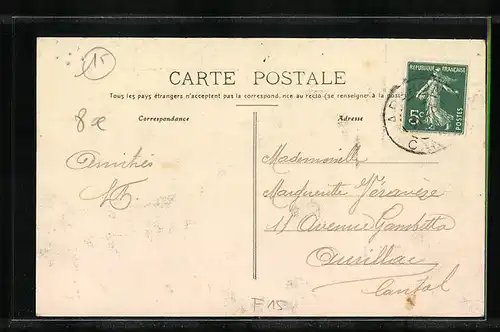 15
CARTE POSTALE
Tous les pays étrangers n'acceptent pas la correspondance au recto (se renseigner à la poste)
RÉPUBLIQUE FRANÇAISE
POSTES
Correspondance
Adresse
Amitiés
Mademoiselle
Marguerite
11 Avenue Gambetta
Aurillac
Cantal
F 15